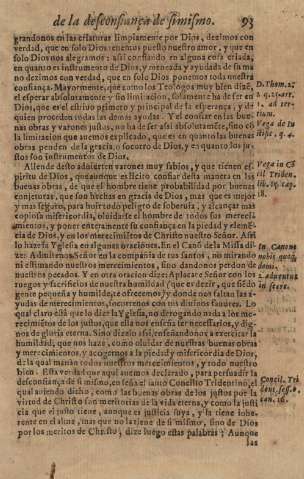 de la desconfiança de si mismo. 93
grandonos en las criaturas limpiamente por Dios, dezimos con
verdad, que en solo Dios tenemos puesto nuestro amor, y que en
solo Dios nos alegramos: assi confiando en alguna cosa criada,
en quanto es instrumento de Dios, y mouida y ayudada de su ma
no dezimos con verdad, que en solo Dios ponemos toda nuestra
confiança. Mayormente, que como los Teologos muy bien dizẽ,
el esperar absolutamente y sin limitacion, solamente ha de ser en
Dios, que es el obrador primero y principal de la esperança, y de
quien proceden todas las demas ayudas. Y el confiar en las bue-
nas obras y varones justos, no ha de ser assi absolutamente, sino cõ
la limitacion que auemos explicado, que es en quanto las buenas
obras penden de la gracia, o socorro de Dios, y en quanto los ju-
stos son instrumentos de Dios.
D. Thom. 2.
Vega de Iu
Allende desto aduierten varones muy sabios, y que tienen es-
piritu de Dios, que aunque es licito confiar desta manera en las
buenas obras, de que el hombre tiene probabilidad por buenas
conjeturas, que son hechas en gracia de Dios, mas que es mejor
y mas seguro, para huir todo peligro de soberuia, y alcançar mas
copiosa misericordia, oluidarse el hombre de todos sus mereci-
mientos, y poner enteramente su confiança en la piedad y clemẽ-
cia de Dios, y en los merecimientos de Christo nuestro Señor. Assi
lo haze la Yglesia en algunas oraciones. En el Canõ de la Missa di-
ze: Admitirnos Señor en la compañia de tus santos, no mirando
ni estimando nuestros merecimientos, sino dandonos perdon de
nuestros pecados. Y en otra oracion dize: Aplacate Señor con los
ruegos y sacrificios de nuestra humildad (que es dezir, que siẽdo
gente pequeña y humilde, te ofrecemos) y donde nos faltan las a-
yudas de merecimientos, socorrenos con tus diuinos fauores. Lo
qual claro està que lo dize la Yglesia, no derogando nada a los me-
recimiẽtos de los justos, que ella nos enseña ser necessarios, y dig-
nos de gloria eterna. Sino dizelo assi, enseñandonos a exercitar la
humildad, que nos haze, como oluidar de nuestras buenas obras
y merecimientos, y acogernos a la piedad y misericordia de Dios,
de la qual manan todos nuestros merecimientos, y todo nuestro
bien. Esta verdad que aqui auemos declarado, para persuadir la
desconfiança de si mismo, enseña el santo Concilio Tridentino, el
qual auiendo dicho, como las buenas obras de los justos por la
virtud de Christo son meritorias de la vida eterna, y como la justi
cia que el justo tiene, aunque es justicia suya, y la tiene inhe-
rente en el alma, mas que no la tiene de si mismo, sino de Dios
por los meritos de Christo; dize luego estas palabras: Aunque
las
Vega in Cõ
cil Triden.
In Canone
Concil. Tri